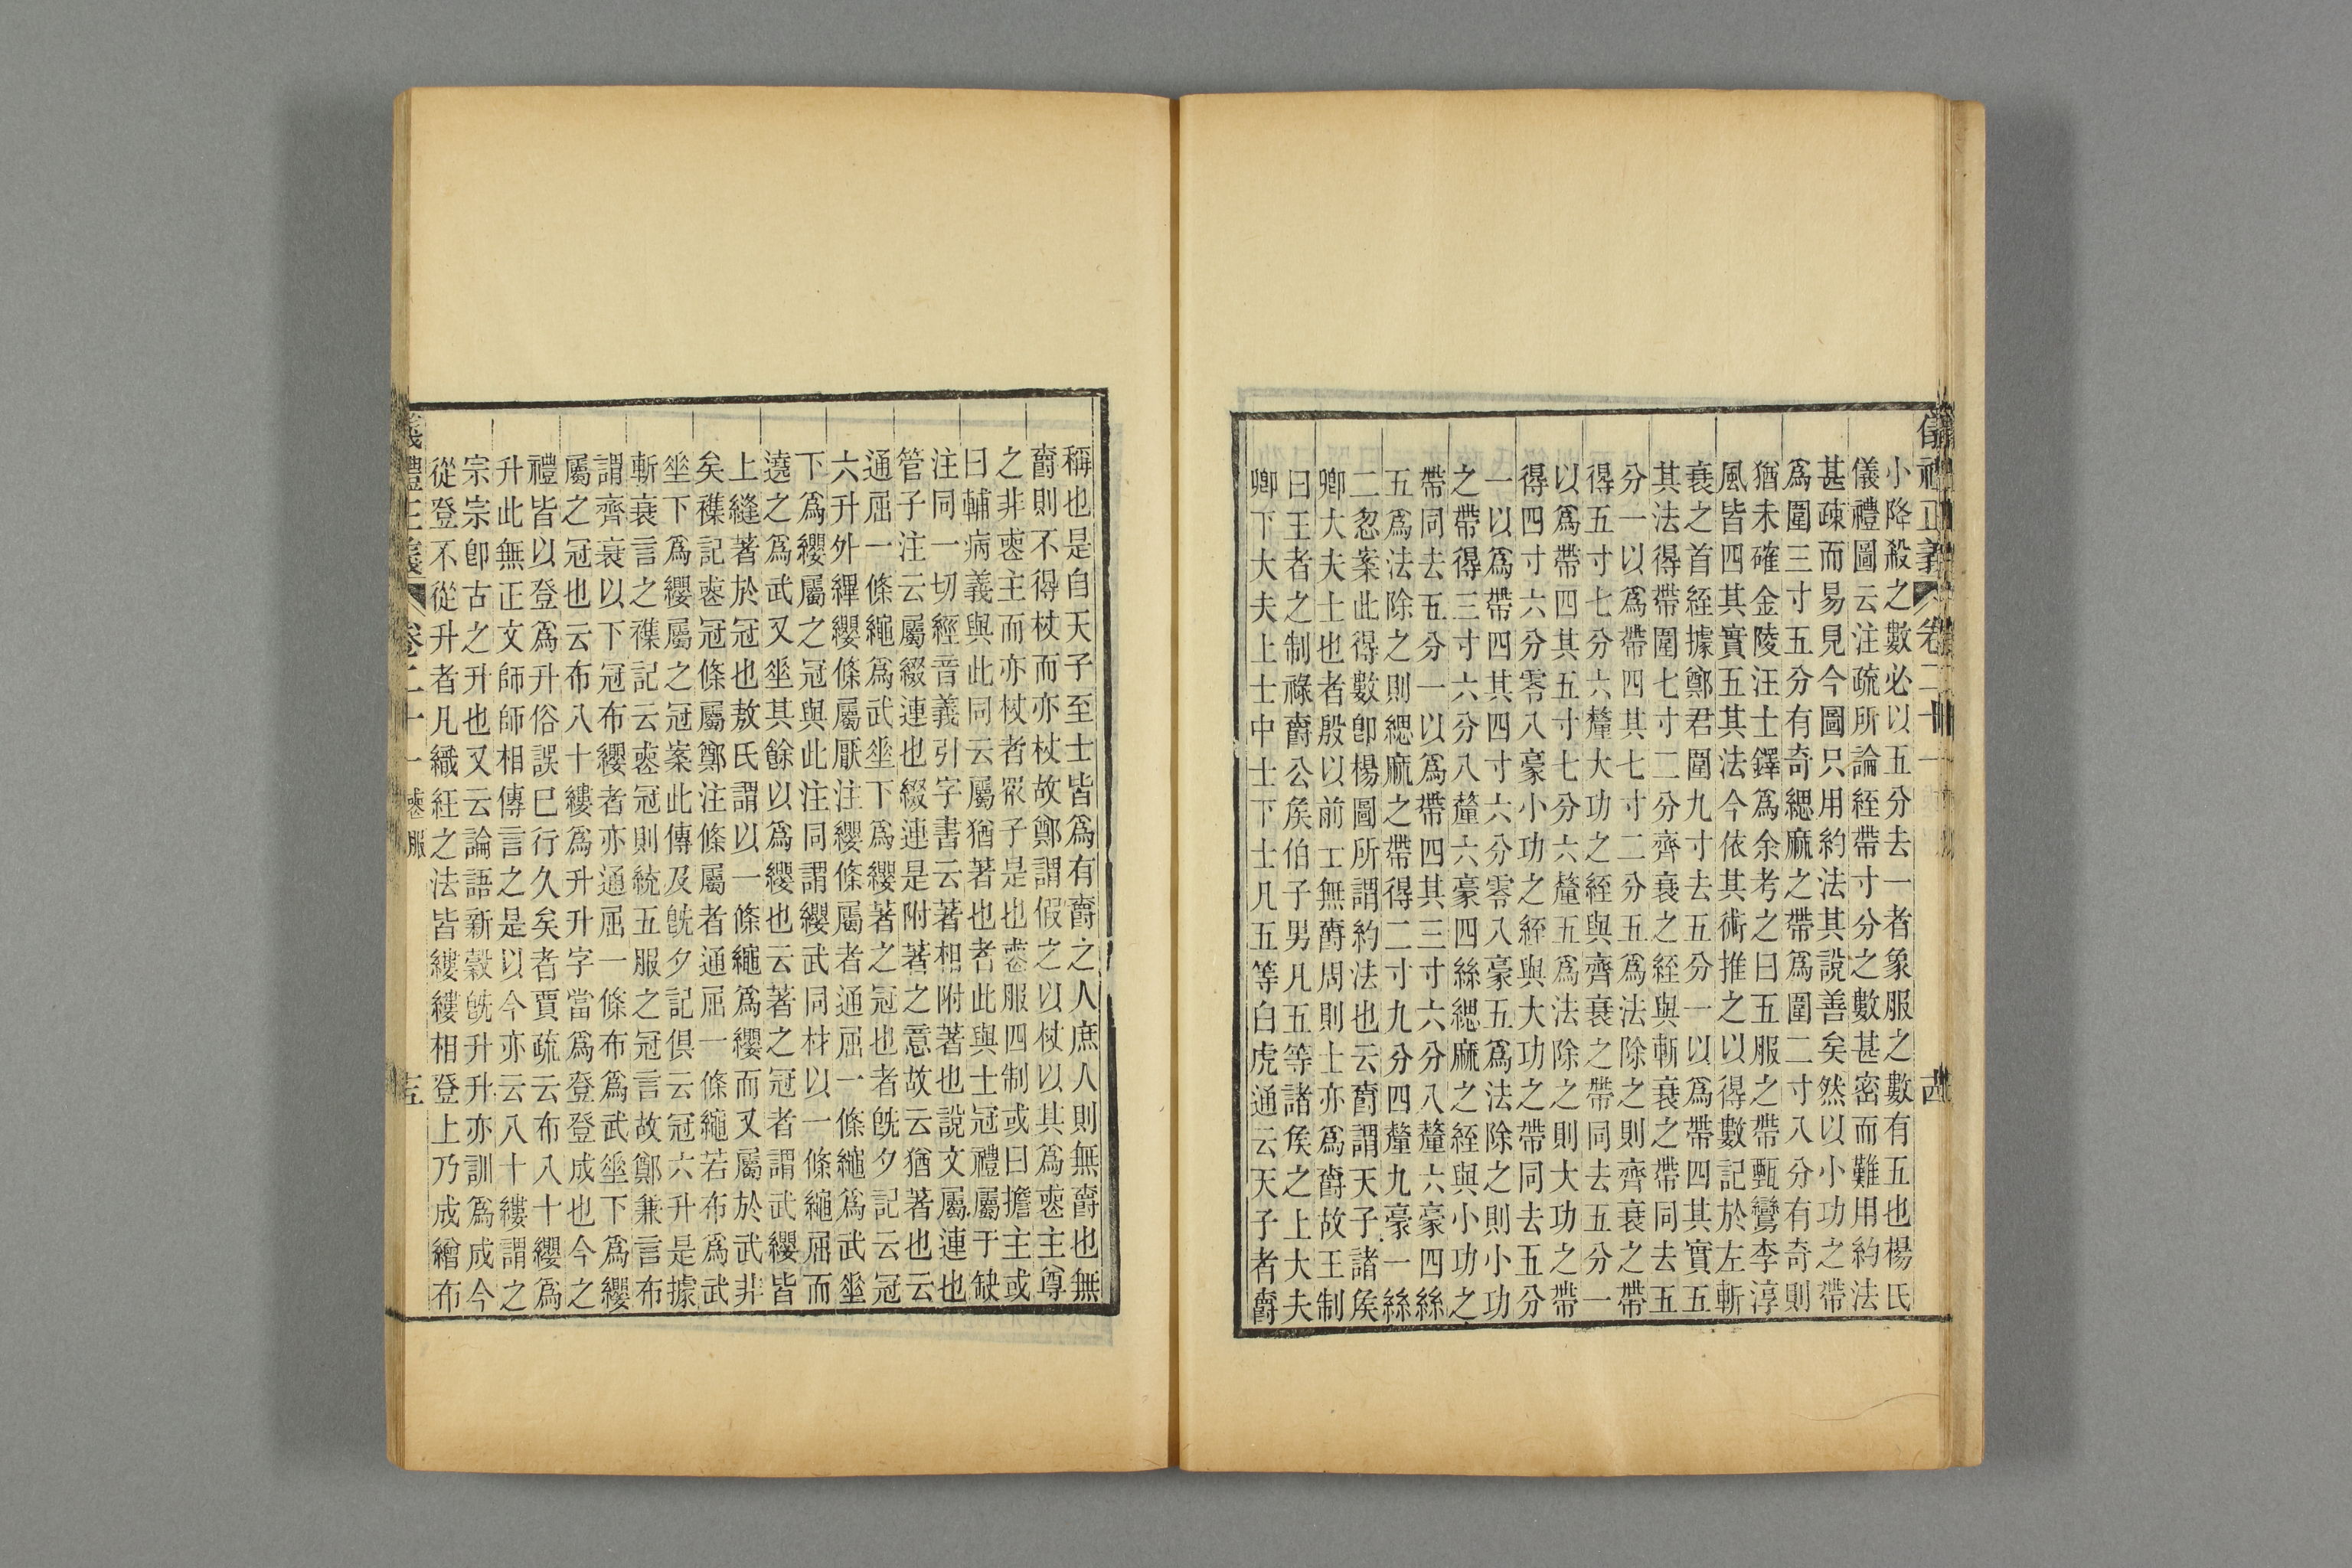 儀禮正義 卷二十一 十四
小降殺之數必以五分去一者象服之數有五也楊氏
儀禮圖云注疏所論絰帶寸分之數甚密而難用約法
甚疎而易見今圖只用約法其說善矣然以小功之帶
爲圍三寸五分有奇緦麻之帶爲圍二寸八分有奇則
猶未確金陵汪士鐸爲余考之曰五服之帶甄鸞李淳
風皆四其實五其法今依其術推之以得數記於左斬
衰之首絰據鄭君圍九寸去五分一以爲帶四其實五
其法得帶圍七寸二分齊衰之絰與斬衰之帶同去五
分一以爲帶四其七寸二分五爲法除之則齊衰之帶
得五寸七分六釐大功之絰與齊衰之帶同去五分一
以爲帶四其五寸七分六釐五爲法除之則大功之帶
得四寸六分零八豪小功之絰與大功之帶同去五分
一以爲帶四其四寸六分零八豪五爲法除之則小功
之帶得三寸六分八釐六豪四絲緦麻之絰與小功之
帶同去五分一以爲帶四其三寸六分八釐六豪四絲
五爲法除之則緦麻之帶得二寸九分四釐九豪一絲
二忽案此得數卽楊圖所謂約法也云爵謂天子諸矦
卿大夫士也者殷以前士無爵周則士亦爲爵故王制
曰王者之制祿爵公矦伯子男凡五等諸矦之上大夫
卿下大夫上士中士下士凡五等白虎通云天子者爵
稱也是自天子至士皆爲有爵之人庶人則無爵也無
爵則不得杖而亦杖故鄭謂假之以杖以其爲喪主尊
之非喪主而亦杖者眾子是也喪服四制或曰擔主或
曰輔病義與此同云屬猶著也者此與士冠禮屬于缺
注同一切經音義引字書云著相附著也說文屬連也
管子注云屬綴連也綴連是附著之意故云猶著也云
通屈一條繩爲武垂下爲纓著之冠也者旣夕記云冠
六升外縪纓條屬厭注纓條屬者通屈一條繩爲武垂
下爲纓屬之冠與此注同謂纓武同材以一條繩屈而
遶之爲武又垂其餘以爲纓也云著之冠者謂武纓皆
上縫著於冠也敖氏謂以一條繩爲纓而又屬於武非
矣襍記喪冠條屬鄭注條屬者通屈一條繩若布爲武
垂下爲纓屬之冠案此傳及旣夕記俱云冠六升是據
斬衰言之襍記云喪冠則統五服之冠言故鄭兼言布
謂齊衰以下冠布纓者亦通屈一條布爲武垂下爲纓
屬之冠也云布八十縷爲升升字當爲登登成也今之
禮皆以登爲升俗誤已行久矣者賈疏云布八十縷爲
升此無正文師師相傳言之是以今亦云八十縷謂之
宗宗卽古之升也又云論語新穀旣升升亦訓爲成今
從登不從升者凡織紝之法皆縷縷相登上乃成繒布
儀禮正義 卷二十一 喪服 十五